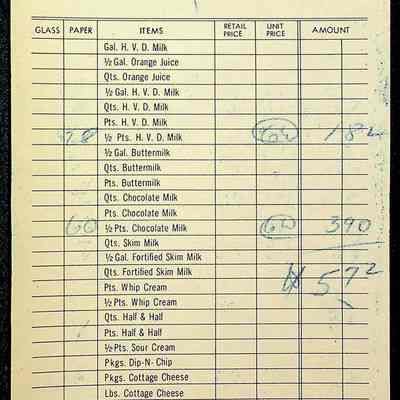 GLASS PAPER ITEMS RETAIL PRICE UNIT PRICE AMOUNT
Gal. H. V. D. Milk
½ Gal. Orange Juice
Qts. Orange Juice
½ Gal. H. V. D. Milk
Qts. H. V. D. Milk
Pts. H. V. D. Milk
28 ½ Pts. H. V. D. Milk 6½ 182
½ Gal. Buttermilk
Qts. Buttermilk
Pts. Buttermilk
Qts. Chocolate Milk
Pts. Chocolate Milk
60 ½ Pts. Chocolate Milk 6½ 390
Qts. Skim Milk
½ Gal. Fortified Skim Milk
Qts. Fortified Skim Milk 572
Pts. Whip Cream
½ Pts. Whip Cream
Qts. Half & Half
Pts. Half & Half
½ Pts. Sour Cream
Pkgs. Dip-N- Chip
Pkgs. Cottage Cheese
Lbs. Cottage Cheese